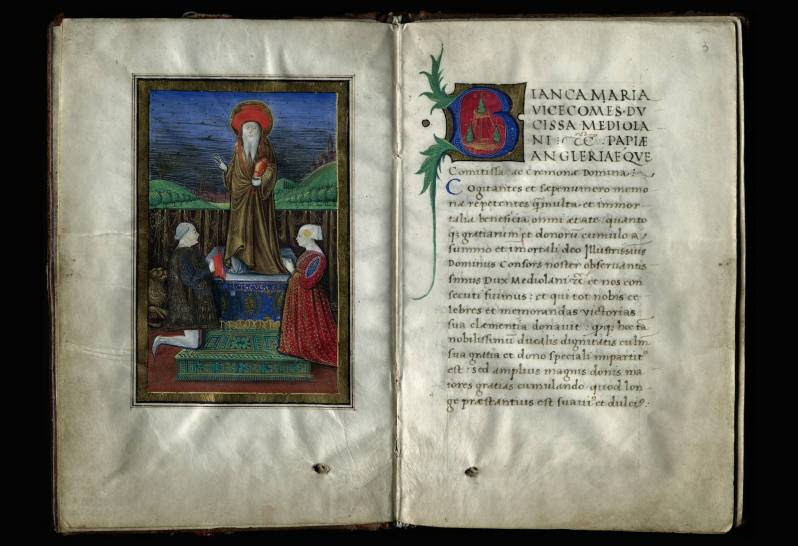 3
BIANCA MARIA
VICECOMES·DV
CISSA MEDIOLA
NI ⁊C̄· PAPIÆ
ANGLERIAEQVE
Comitissa ac Cremonæ Domina:
Cogitantes et sæpenumero memo
riæ repetentes q̃ multa et immor
talia beneficia omni ætate: quanto
q; gratiarum et donorũ cumulo a
summo et imortali deo Illustrissius
Dominus Consors noster observantis
simus Dux Mediolani ⁊c̄ et nos con
secuti fuimus: et qui tot nobis ce
lebres et memorandas victorias
sua clementia donavit: hoc ta
nobilissimũ ducalis dignitatis culm
sua gratia et dono speciali impartit
est: sed amplius magnis donis ma
iores gratias cumulando quod lon
ge præstantius est suavi et dulci